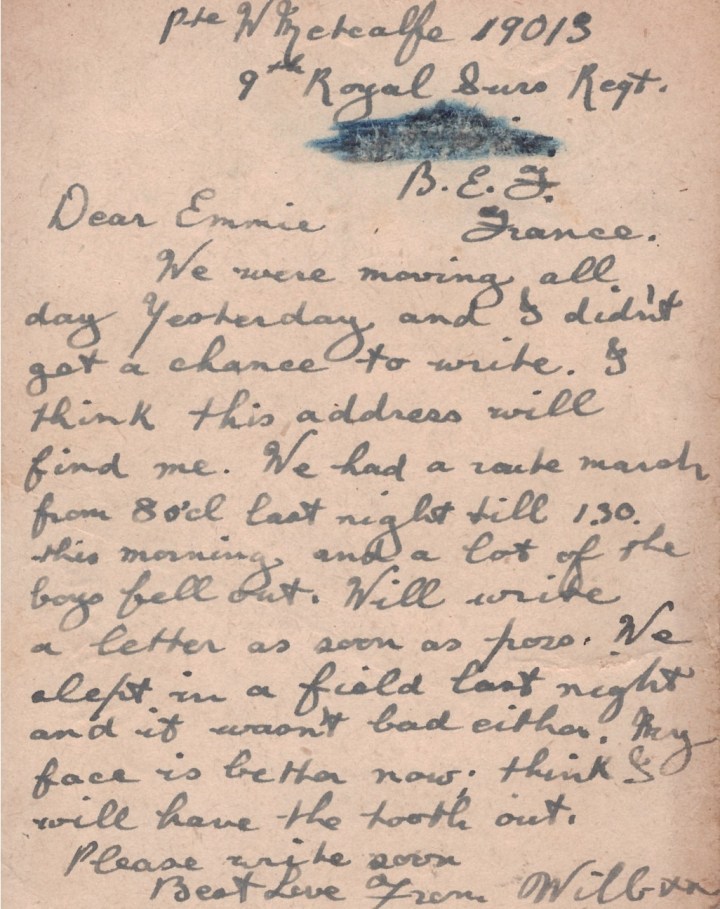 Pte W Metcalfe 19013
9th Royal Surs Regt.
B.E.F.
Dear Emmie France.
We were moving all
day Yesterday and I didn't
get a chance to write. I
think this address will
find me. We had a route march
from 8 o'cl last night till 1.30.
this morning and a lot of the
boys fell out. Will write
a letter as soon as poss. We
slept in a field last night
and it wasn't bad either. My
face is better now; think I
will have the tooth out.
Please write soon
Best Love From Wilb xx